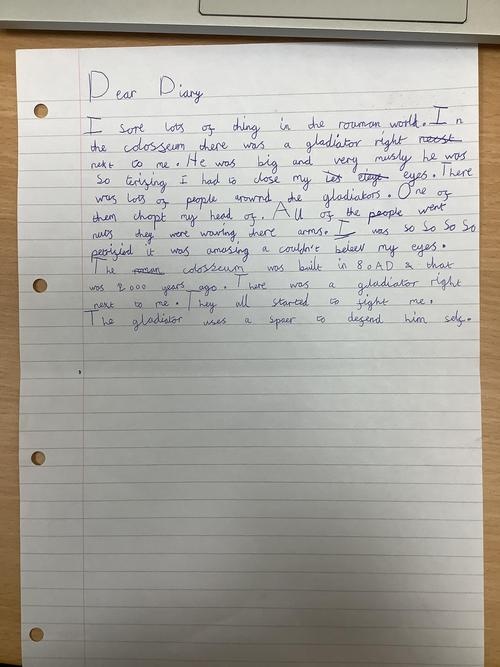 Dear Diary
I sore lots of thing in the rouman world. In
the colosseum there was a gladiator right
next to me. He was big and very musly he was
So terifing I had to close my eyes. There
was lots of people arownd the gladiators. One of
them chopt my head of. All of the people went
nuts they were waving there arms. I was so So So So
petrisied it was amasing a couldn't beleev my eyes.
The colosseum was built in 80AD & that
was 2000 years ago. There was a gladiator right
next to me. They all started to fight me.
The gladiator uses a spear to defend him self.